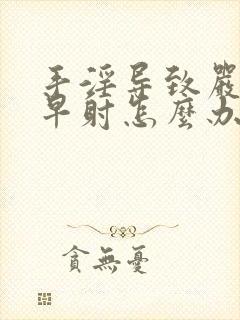 手淫导致嚴
早射怎麽办
貪無憂